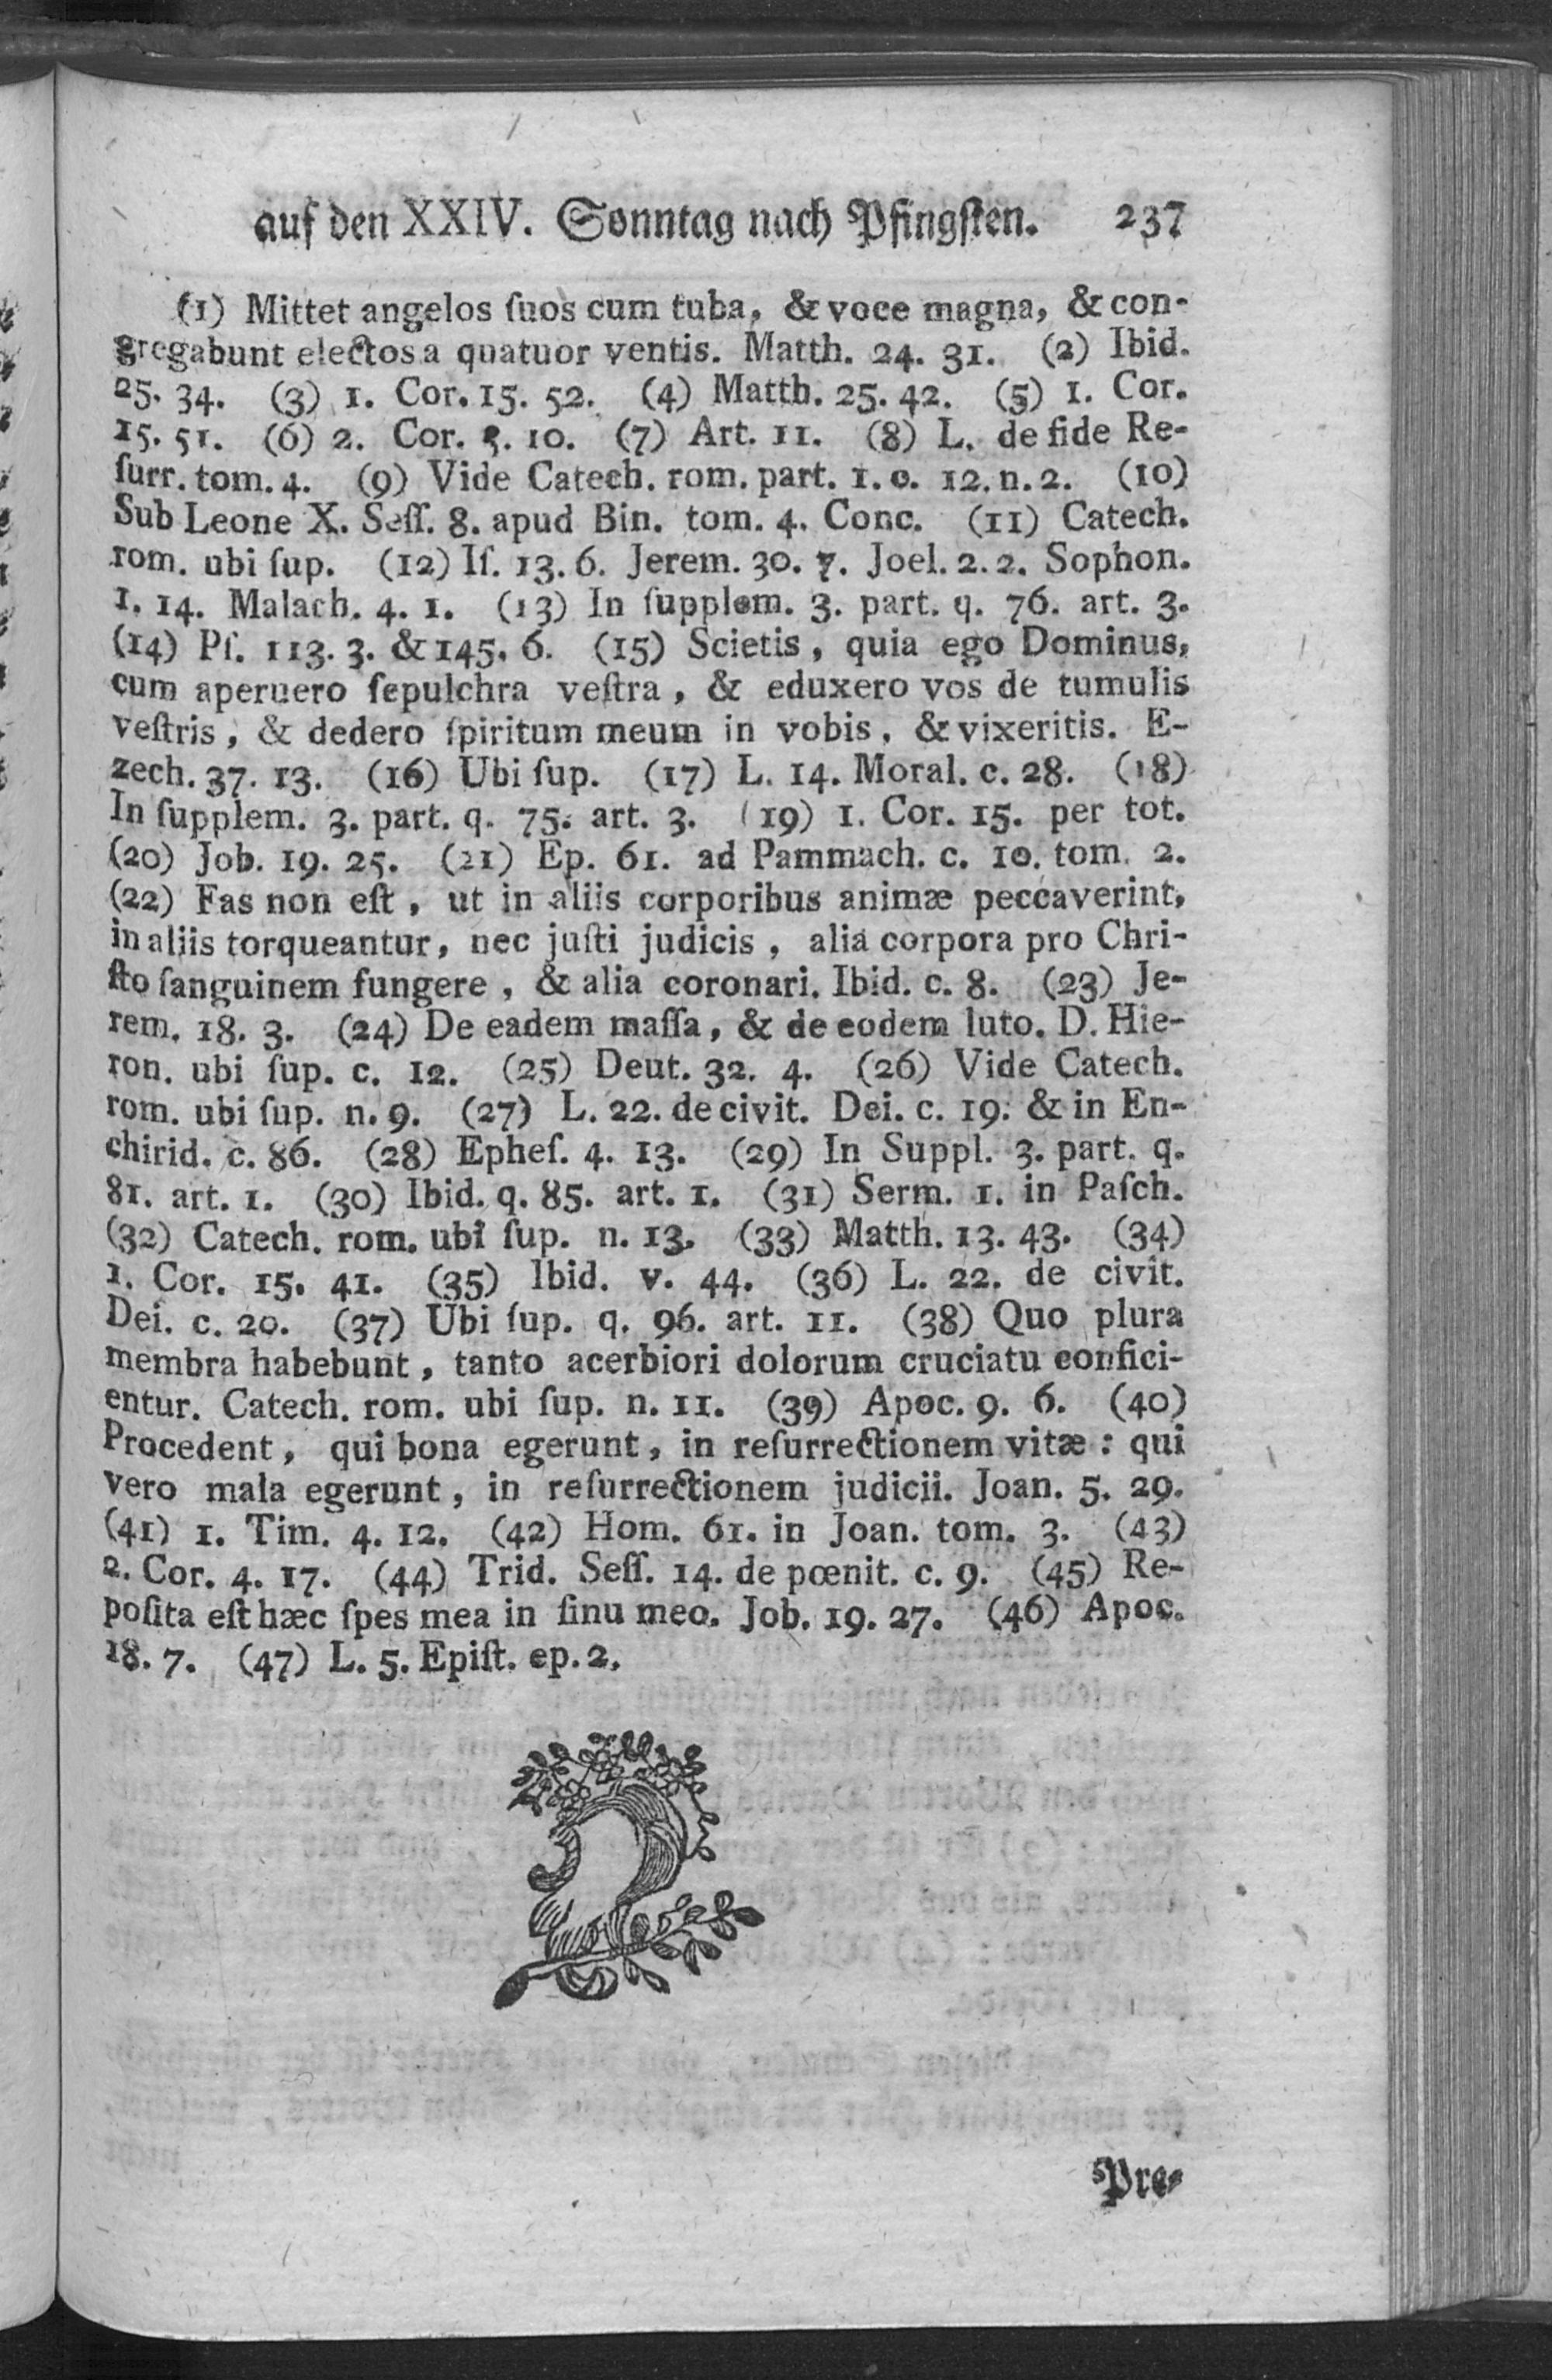 auf den XXIV. Sonntag nach Pfingsten. 237
(1) Mittet angelos ſuos cum tuba, & voce magna, & con-
gregabunt electos a quatuor ventis. Matth. 24. 31. (2) Ibid.
25. 34. (3) 1. Cor. 15. 52. (4) Matth. 25. 42. (5) 1. Cor.
15. 51. (6) 2. Cor. 5. 10. (7) Art. 11. (8) L. de fide Re-
ſurr. tom. 4. (9) Vide Catech. rom. part. 1. c. 12. n. 2. (10)
Sub Leone X. Seſſ. 8. apud Bin. tom. 4. Conc. (11) Catech.
rom. ubi ſup. (12) Iſ. 13. 6. Jerem. 30. 7. Joel. 2. 2. Sophon.
1. 14. Malach. 4. 1. (13) In ſupplem. 3. part. q. 76. art. 3.
(14) Pſ. 113. 3. & 145. 6. (15) Scietis, quia ego Dominus,
cum aperuero ſepulchra veſtra, & eduxero vos de tumulis
veſtris, & dedero ſpiritum meum in vobis, & vixeritis. E-
zech. 37. 13. (16) Ubi ſup. (17) L. 14. Moral. c. 28. (18)
In ſupplem. 3. part. q. 75. art. 3. (19) 1. Cor. 15. per tot.
(20) Job. 19. 25. (21) Ep. 61. ad Pammach. c. 10. tom. 2.
(22) Fas non eſt, ut in aliis corporibus animæ peccaverint,
in aliis torqueantur, nec juſti judicis, alia corpora pro Chri-
ſto ſanguinem fungere, & alia coronari. Ibid. c. 8. (23) Je-
rem. 18. 3. (24) De eadem maſſa, & de eodem luto. D. Hie-
ron. ubi ſup. c. 12. (25) Deut. 32. 4. (26) Vide Catech.
rom. ubi ſup. n. 9. (27) L. 22. de civit. Dei. c. 19. & in En-
chirid. c. 86. (28) Epheſ. 4. 13. (29) In Suppl. 3. part. q.
81. art. 1. (30) Ibid. q. 85. art. 1. (31) Serm. 1. in Paſch.
(32) Catech. rom. ubi ſup. n. 13. (33) Matth. 13. 43. (34)
1. Cor. 15. 41. (35) Ibid. v. 44. (36) L. 22. de civit.
Dei. c. 20. (37) Ubi ſup. q. 96. art. 11. (38) Quo plura
membra habebunt, tanto acerbiori dolorum cruciatu confici-
entur. Catech. rom. ubi ſup. n. 11. (39) Apoc. 9. 6. (40)
Procedent, qui bona egerunt, in reſurrectionem vitæ: qui
vero mala egerunt, in reſurrectionem judicii. Joan. 5. 29.
(41) 1. Tim. 4. 12. (42) Hom. 61. in Joan. tom. 3. (43)
2. Cor. 4. 17. (44) Trid. Seſſ. 14. de pœnit. c. 9. (45) Re-
poſita eſt hæc ſpes mea in ſinu meo. Job. 19. 27. (46) Apoc.
18. 7. (47) L. 5. Epiſt. ep. 2.
Pre-